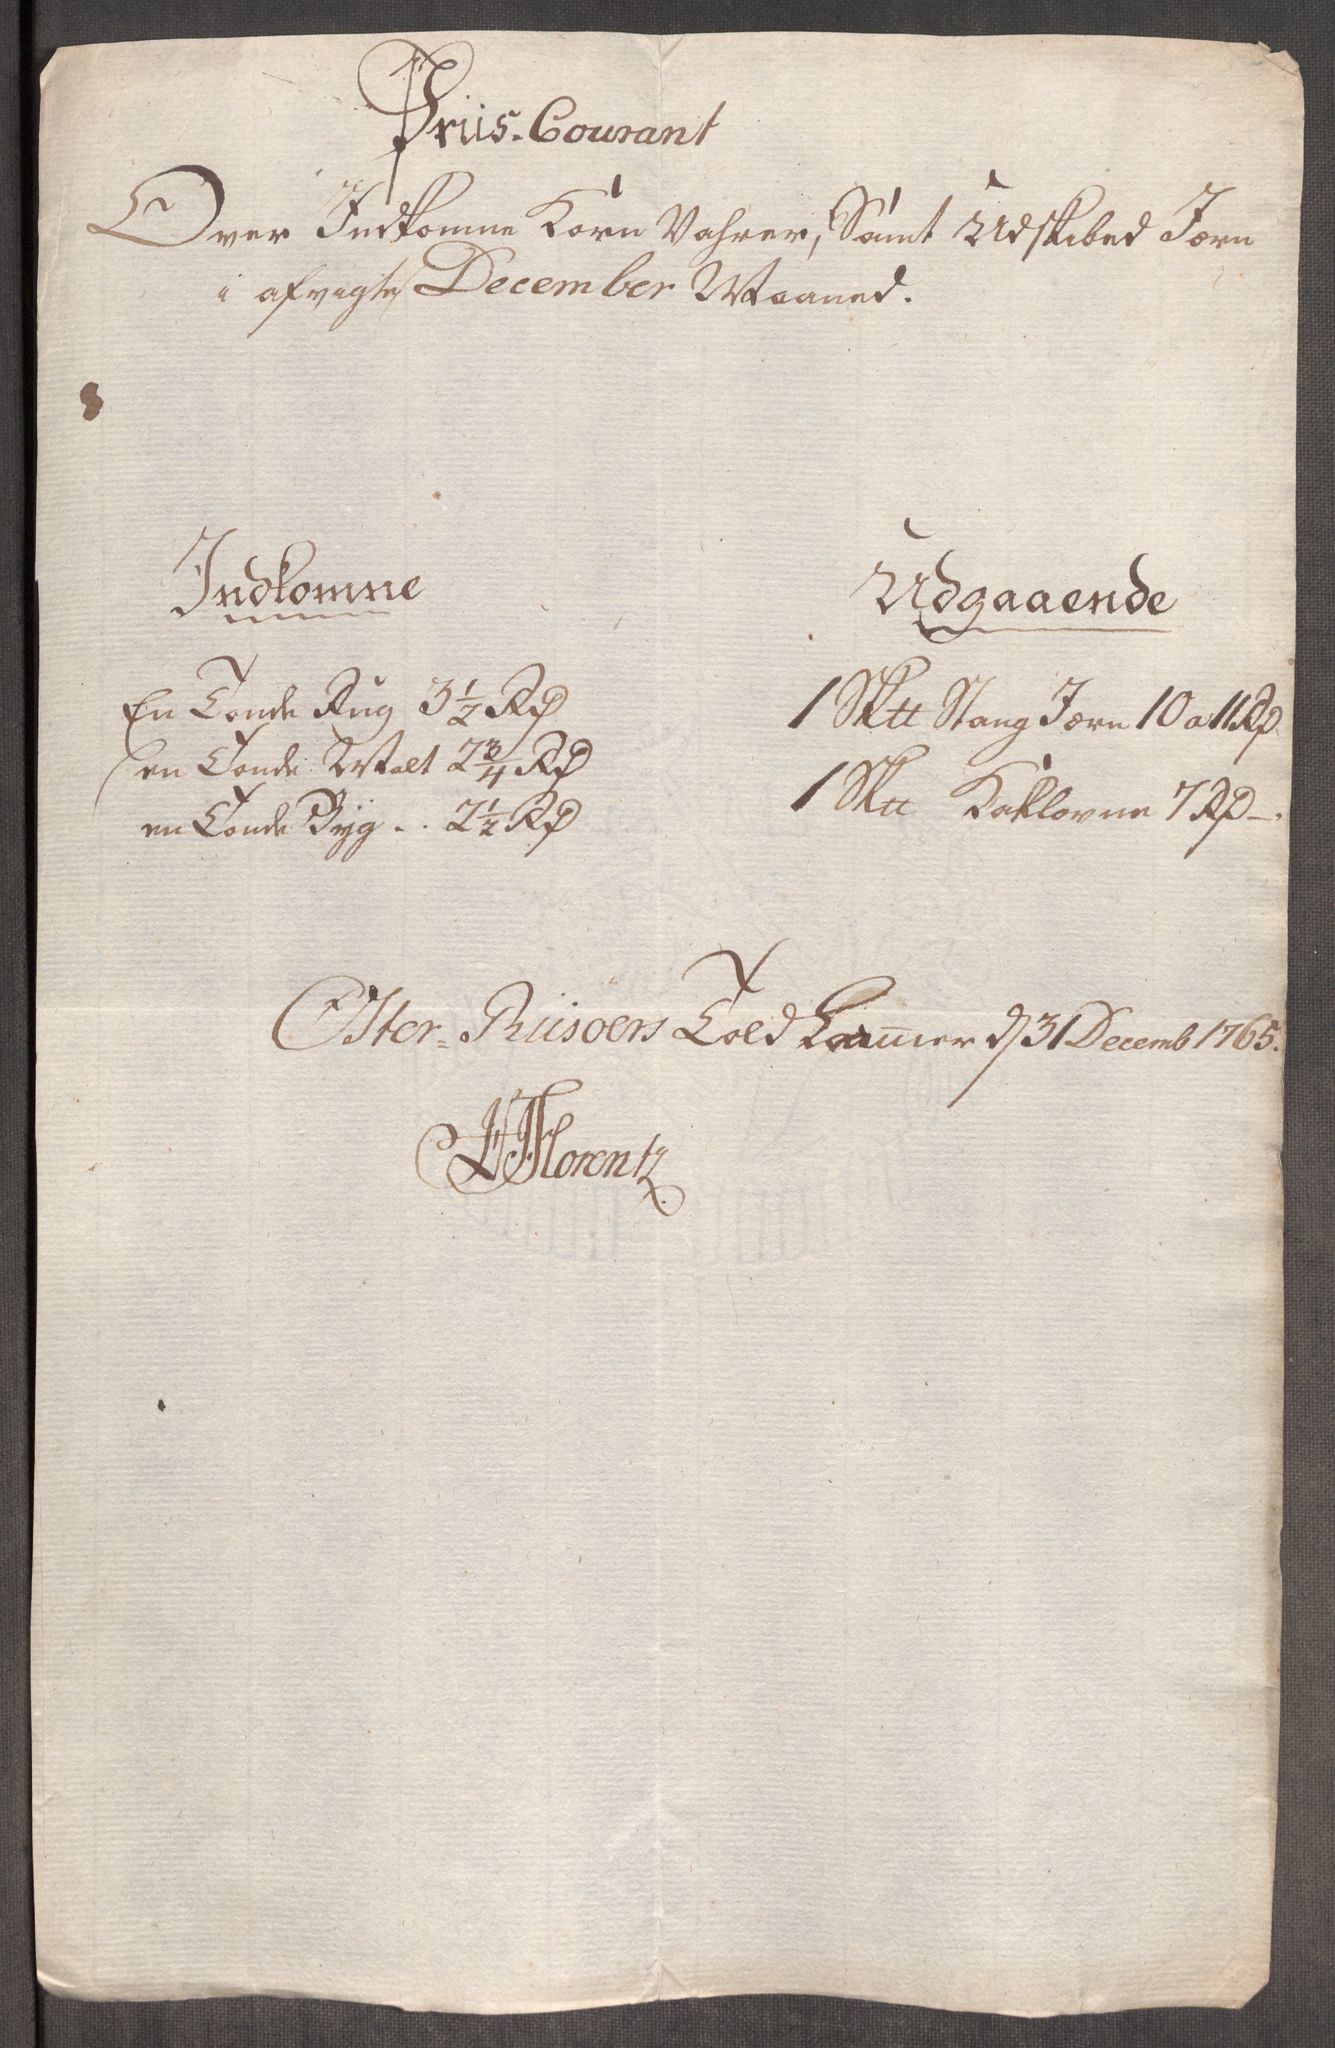 Priis-Courant
Over Indkomne Korn Vahrer, Samt Udskibed Jern
i afvigte December Maaned.
Indkomne
Udgaaende
En Tonde Rug 3 1/2 Rd
en Tonde Malt 2 3/4 Rd
en Tonde Byg .. 2 1/2 Rd
1 Sk℔ Stang Jern 10 a 11 Rd
1 Sk℔ Kaklovne 7 Rd -.
Öster-Riisöers Told Kammer d 31 Decemb 1765.
Florentz